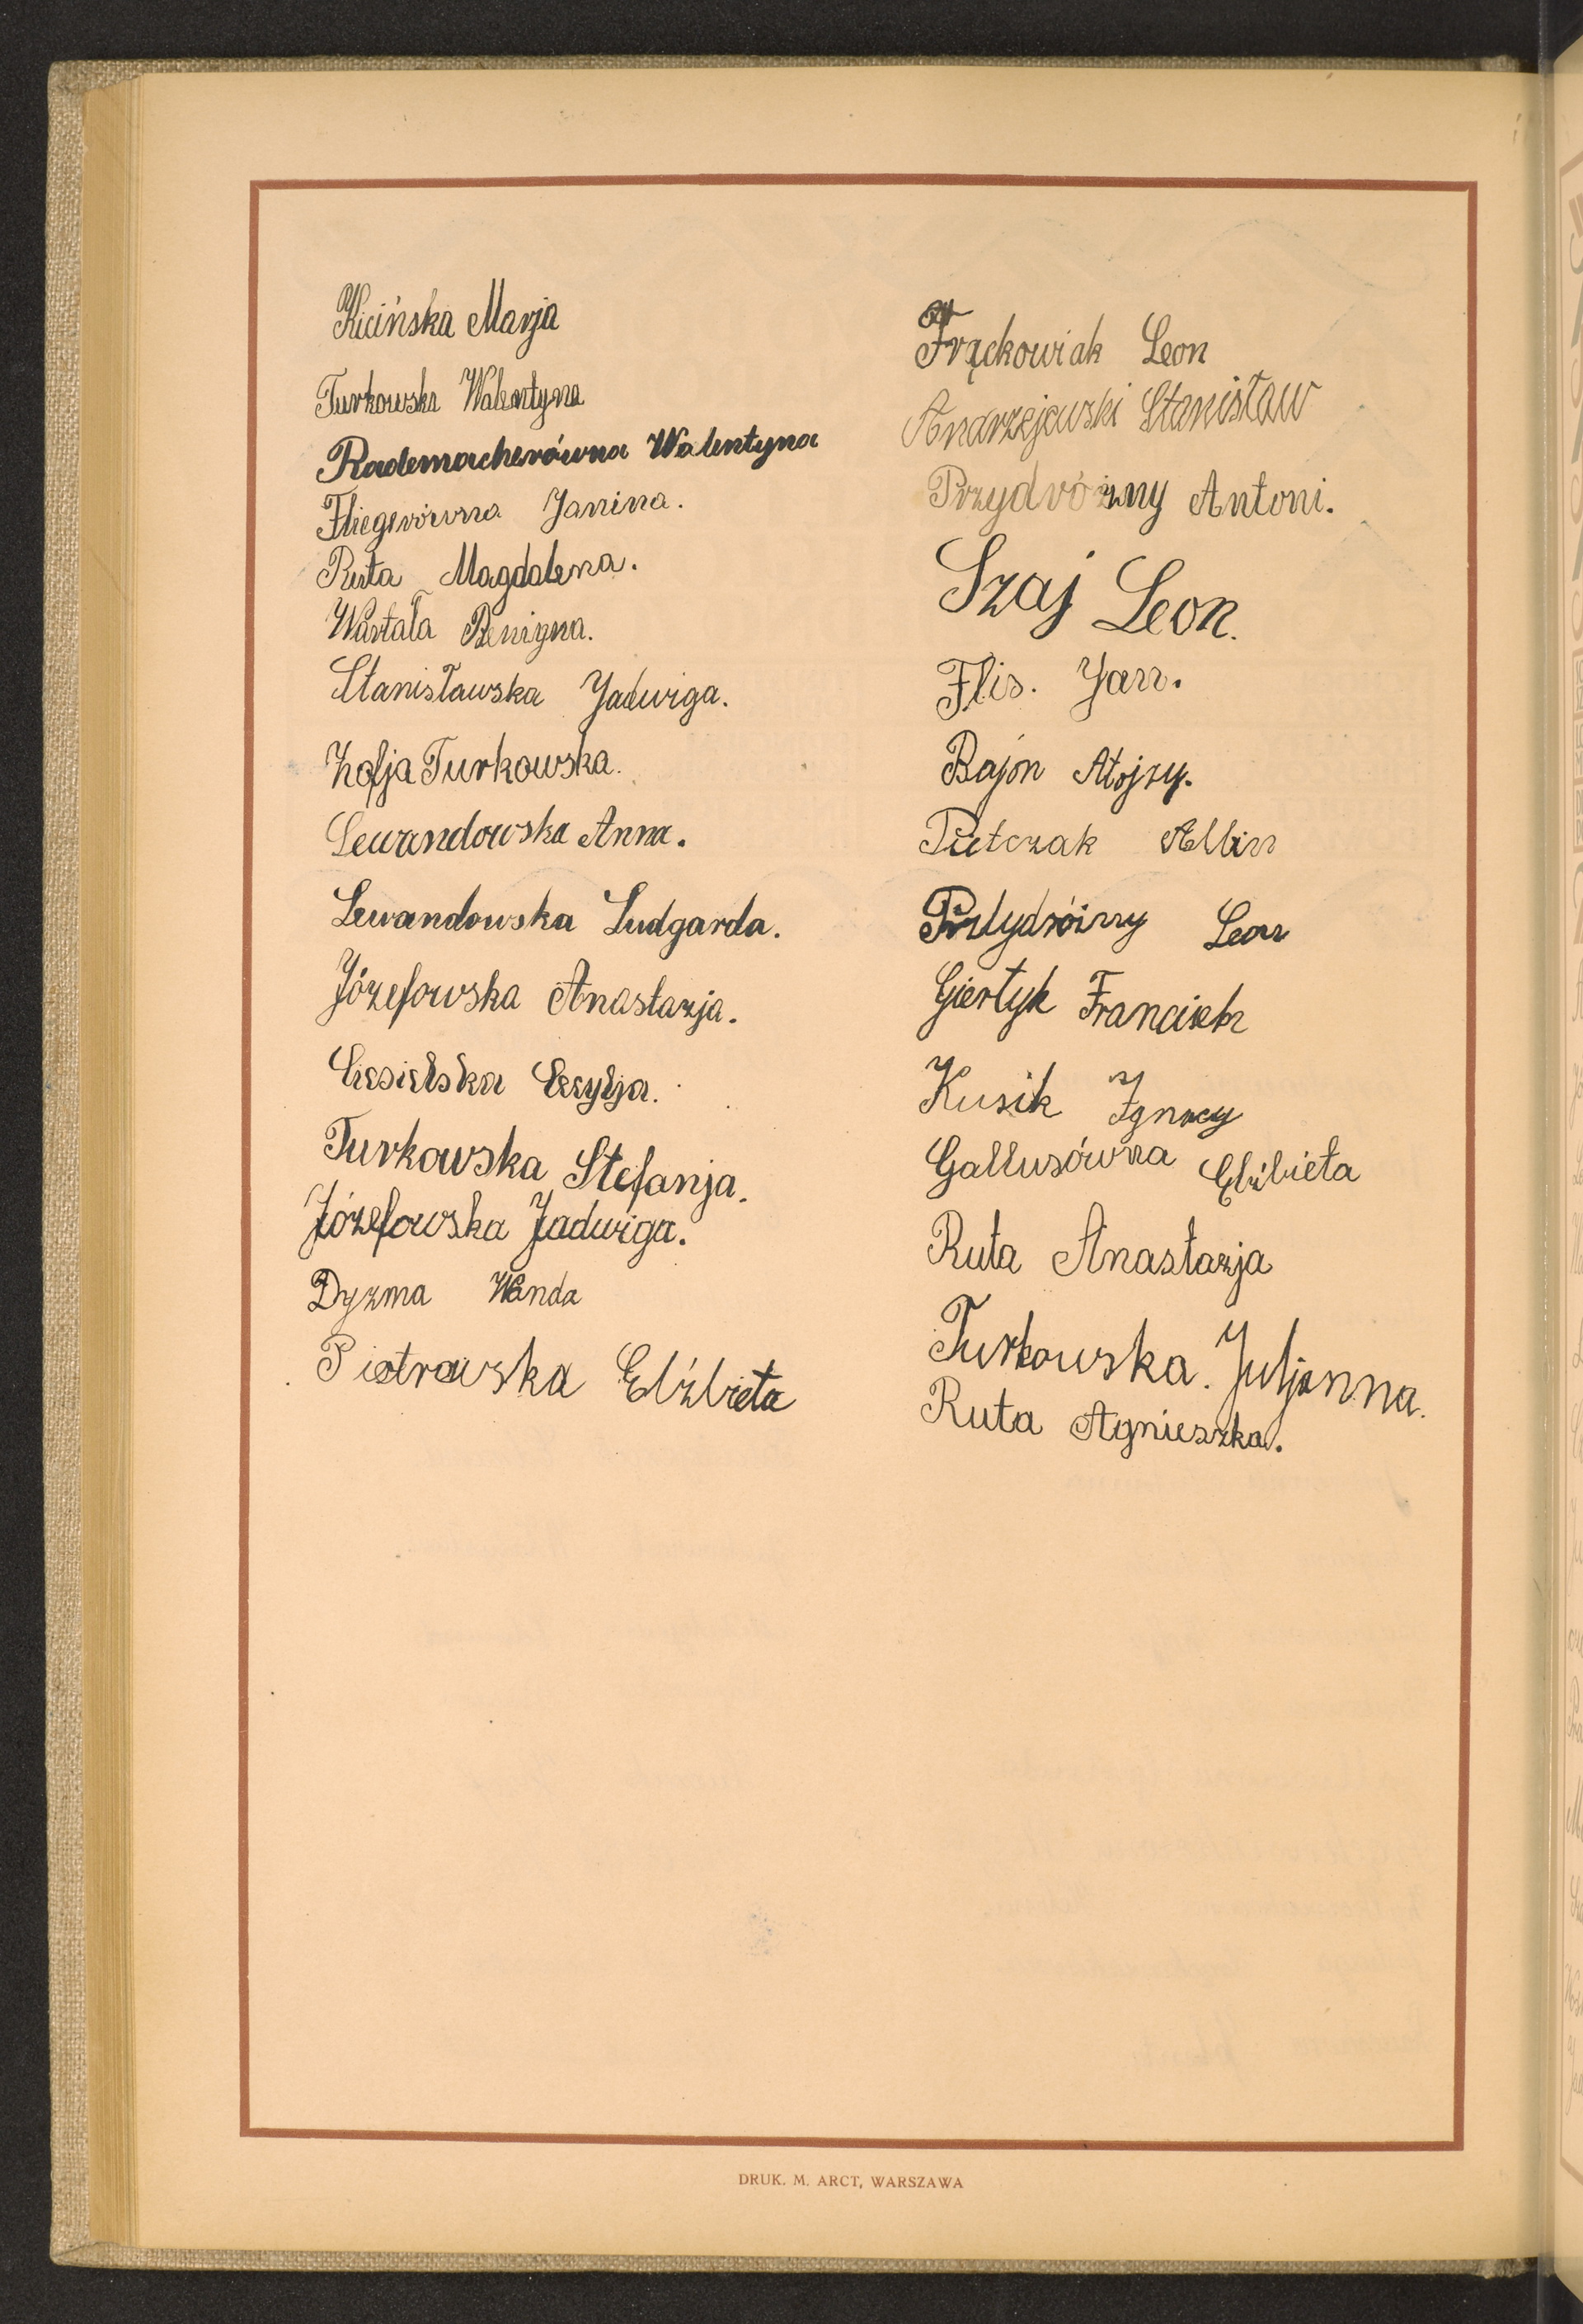 Kicińska Marja
Turkowska Walentyna
Rademacherówna Walentyna
Fliegerówna Janina.
Ruta Magdalena.
Wartała Benigna.
Stanisławska Jadwiga.
Zofja Turkowska.
Lewandowska Anna.
Lewandowska Ludgarda.
Józefowska Anastazja.
Ciesielska Cecylja.
Turkowska Stefanja.
Józefowska Jadwiga.
Dyzma Wanda
Piotrowska Elżbieta
Frąckowiak Leon
Andrzejewski Stanisław
Przydróżny Antoni.
Szaj Leon.
Flis. Jan.
Bajon Alojzy.
Pietczak Albin
Przydróżny Leon
Giertyk Francisek
Kusik Ignacy
Gallusówna Elżbieta
Ruta Anastazja
Turkowska. Juljanna.
Ruta Agnieszka.
DRUK. M. ARCT, WARSZAWA